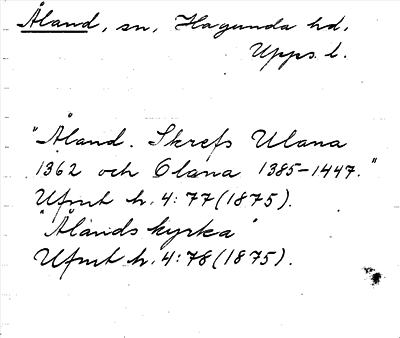 Åland, sn, Hagunda hd,
Upps. l.
"Åland. Skrefs Ulana
1362 och Olana 1385-1447."
Ufmt h. 4:77 (1875).
"Ålands kyrka"
Ufmt h. 4:78 (1875).